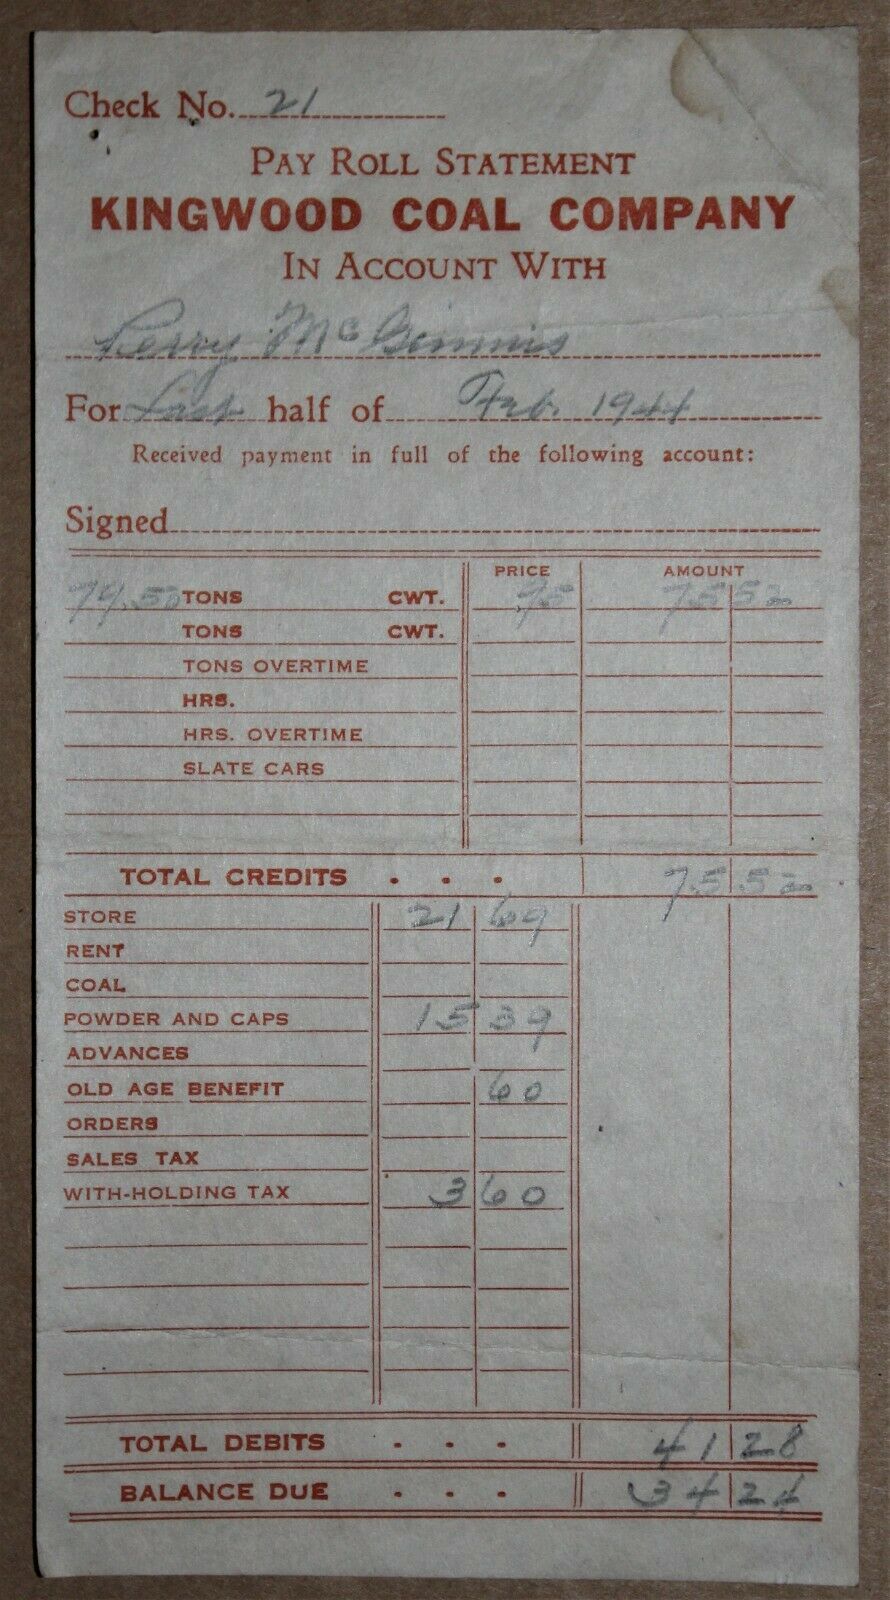 Check No. 21
PAY ROLL STATEMENT
KINGWOOD COAL COMPANY
IN ACCOUNT WITH
Perry McGinnis
For Last half of Feb. 1944
Received payment in full of the following account:
Signed
PRICE AMOUNT
79.50 TONS CWT. .95 75 52
TONS CWT.
TONS OVERTIME
HRS.
HRS. OVERTIME
SLATE CARS
TOTAL CREDITS . . . 75 52
STORE 21 69
RENT
COAL
POWDER AND CAPS 15 39
ADVANCES
OLD AGE BENEFIT 60
ORDERS
SALES TAX
WITH-HOLDING TAX 3 60
TOTAL DEBITS . . . 41 28
BALANCE DUE . . . 34 24